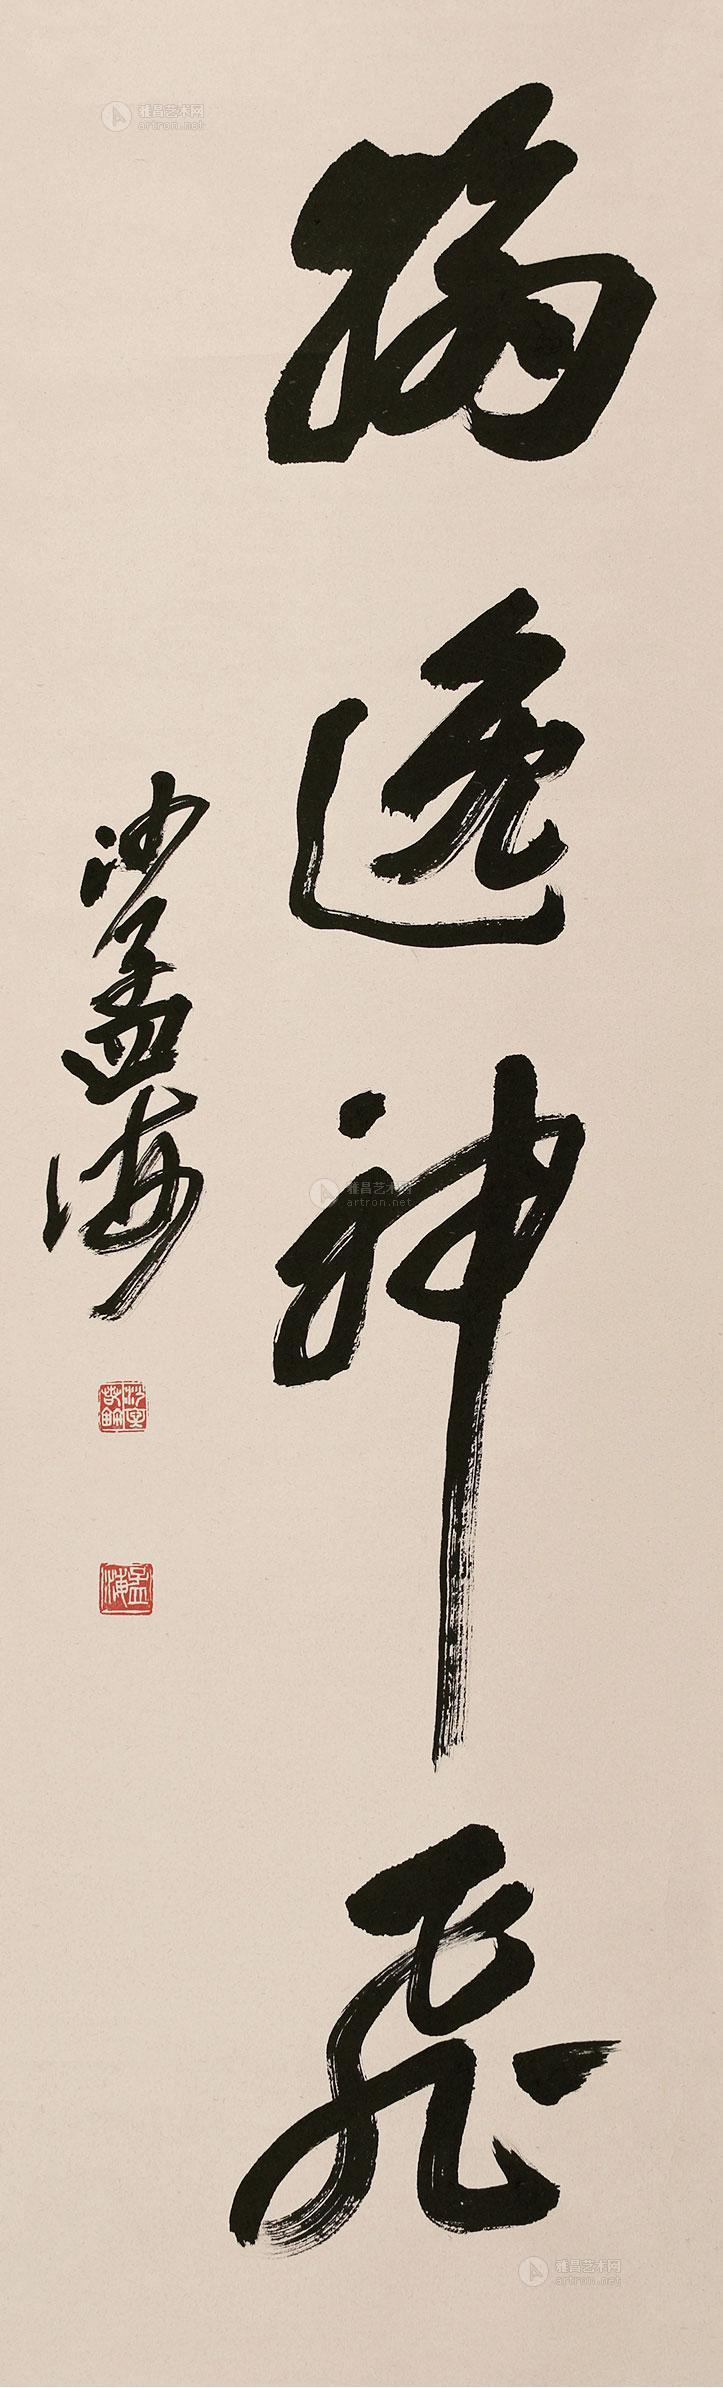 翰逸神飛
沙孟海
孟海
雅昌艺术网
artron.net
雅昌艺术网
artron.net
雅昌艺术网
artron.net